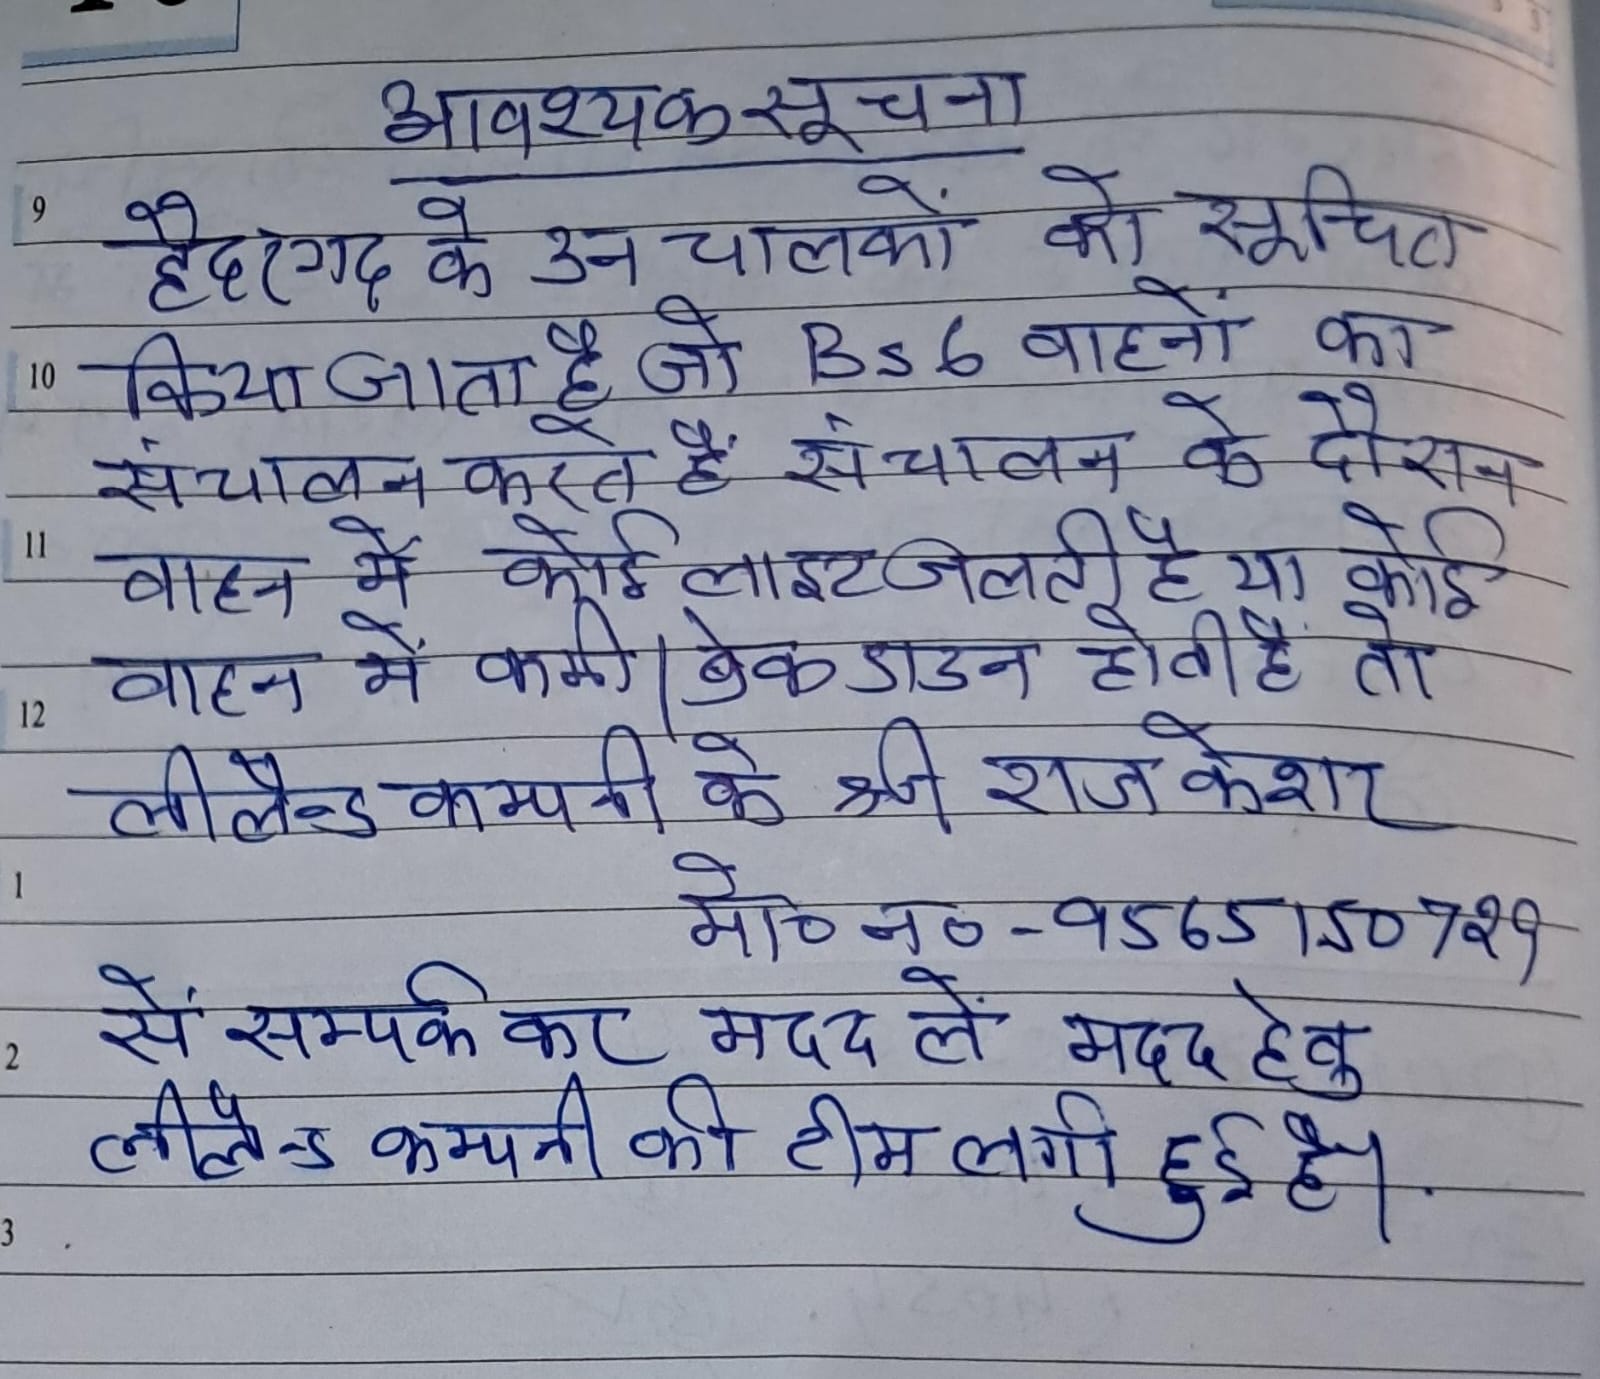 आवश्यक सूचना
9 हैदरगढ के उन चालकों को सूचित
10 किया जाता है जो BS6 वाहनों का
संचालन करते हैं संचालन के दौरान
11 वाहन में कोई लाइट जलती है या कोई
वाहन में कमी/ब्रेक डाउन होती हैं तो
12
लीलैन्ड कम्पनी के श्री राज केशर
1 मो० न० - 9565150729
से सम्पर्क कर मदद लें मदद हेतु
2
लीलैन्ड कम्पनी की टीम लगी हुई है।
3